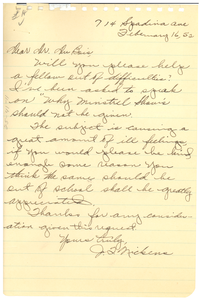 714 Spadina Ave
February 16, 52
Dear Dr. DuBois
Will you please help
a fellow out of difficulties!
I've been asked to speak
on Why Minstrel Shows
should not be given.
The subject is causing a
great amount of ill feeling
if you would please be kind
enough some reason you
think the same should be
out of school shall be greatly
appreciated.
Thanks for any consider-
ation given this request.
Yours truly,